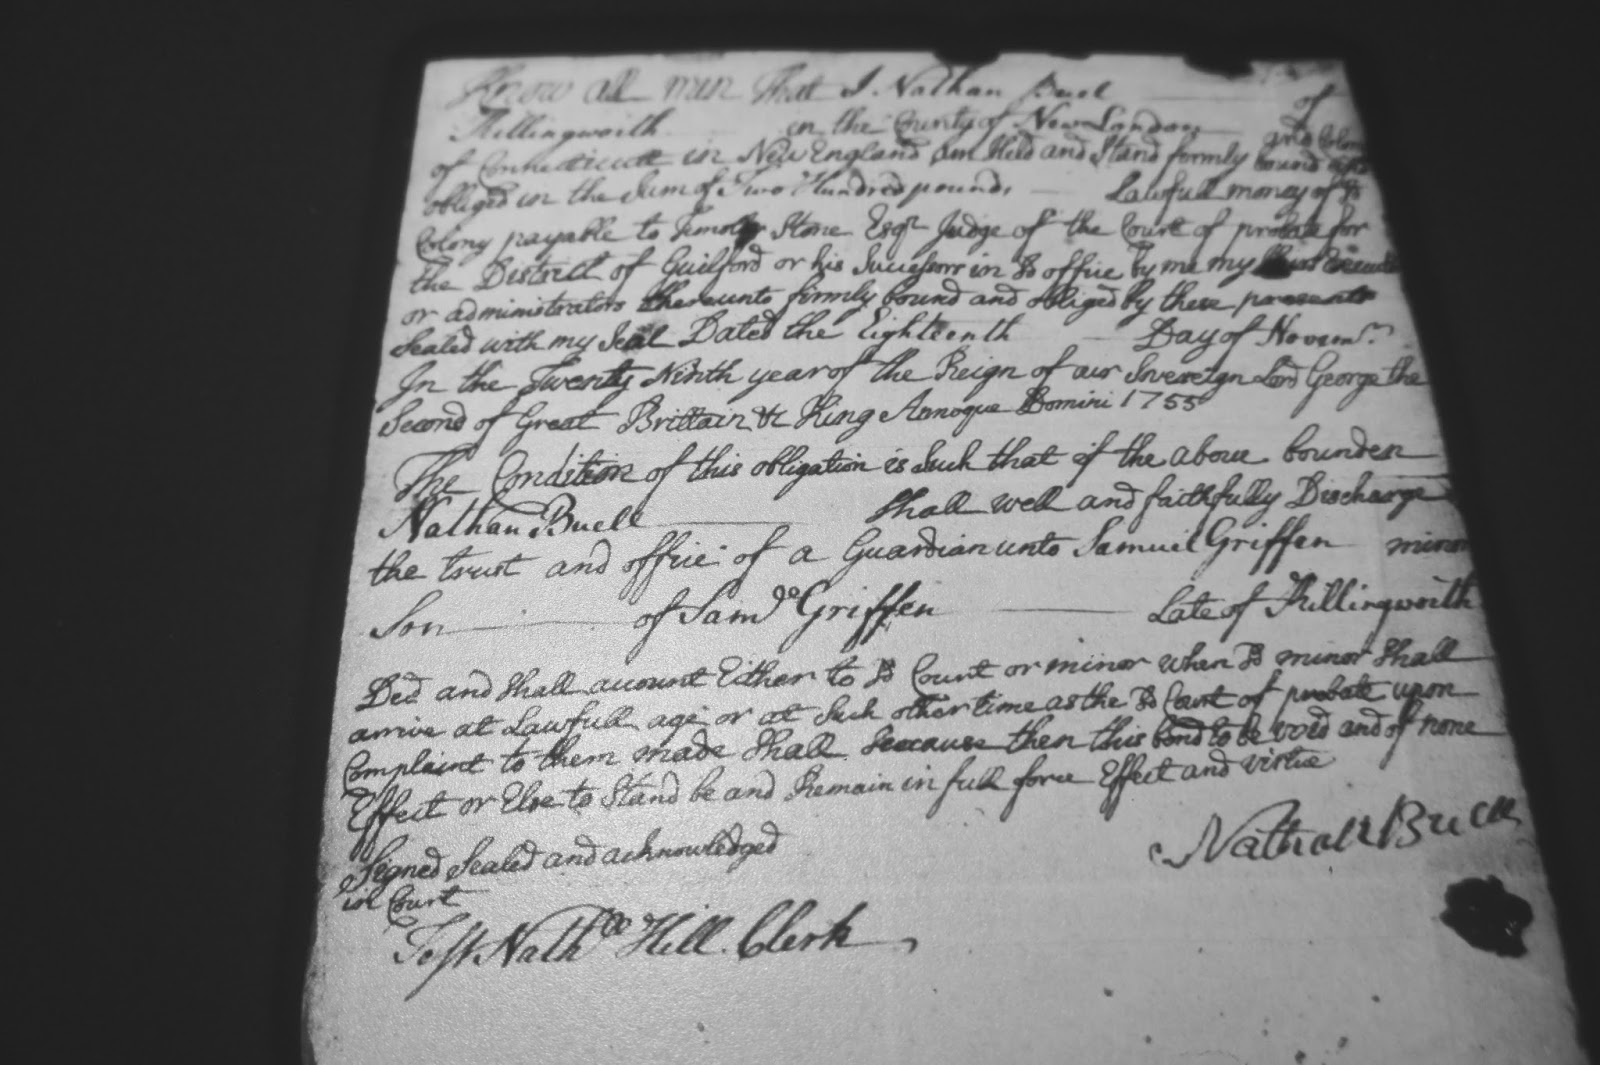 Know all men that I Nathan Buel of
Killingworth in the County of New London and Colony
of Connecticutt in New England am Held and Stand formly bound and
obliged in the Sum of Two Hundred pounds, Lawfull money of sd
Colony payable to Timothy Stone Esqr Judge of the Court of probate for
the District of Guilford or his Successors in sd office by me my
or administrators thereunto firmly bound and obliged by these presents
Sealed with my Seal Dated the Eighteenth Day of Novemr.
In the Twenty Ninth year of the Reign of our Sovereign Lord George the
Second of Great Brittain &c King Annoque Domini 1755
The Condition of this obligation is Such that if the above bounden
Nathan Buell Shall well and faithfully Discharge
the trust and office of a Guardian unto Samuel Griffen minor
Son of Samll Griffen Late of Killingworth
Decd and Shall account Either to sd Court or minor when sd minor Shall
arrive at Lawfull age or at Such other time as the sd Court of probate upon
Complaint to them made Shall then this bond to be void and of none
Effect or Else to Stand be and Remain in full force Effect and virtue
Signed Sealed and acknowledged
in Court
Nathan Buell
Test Nathll Hill. Clerk